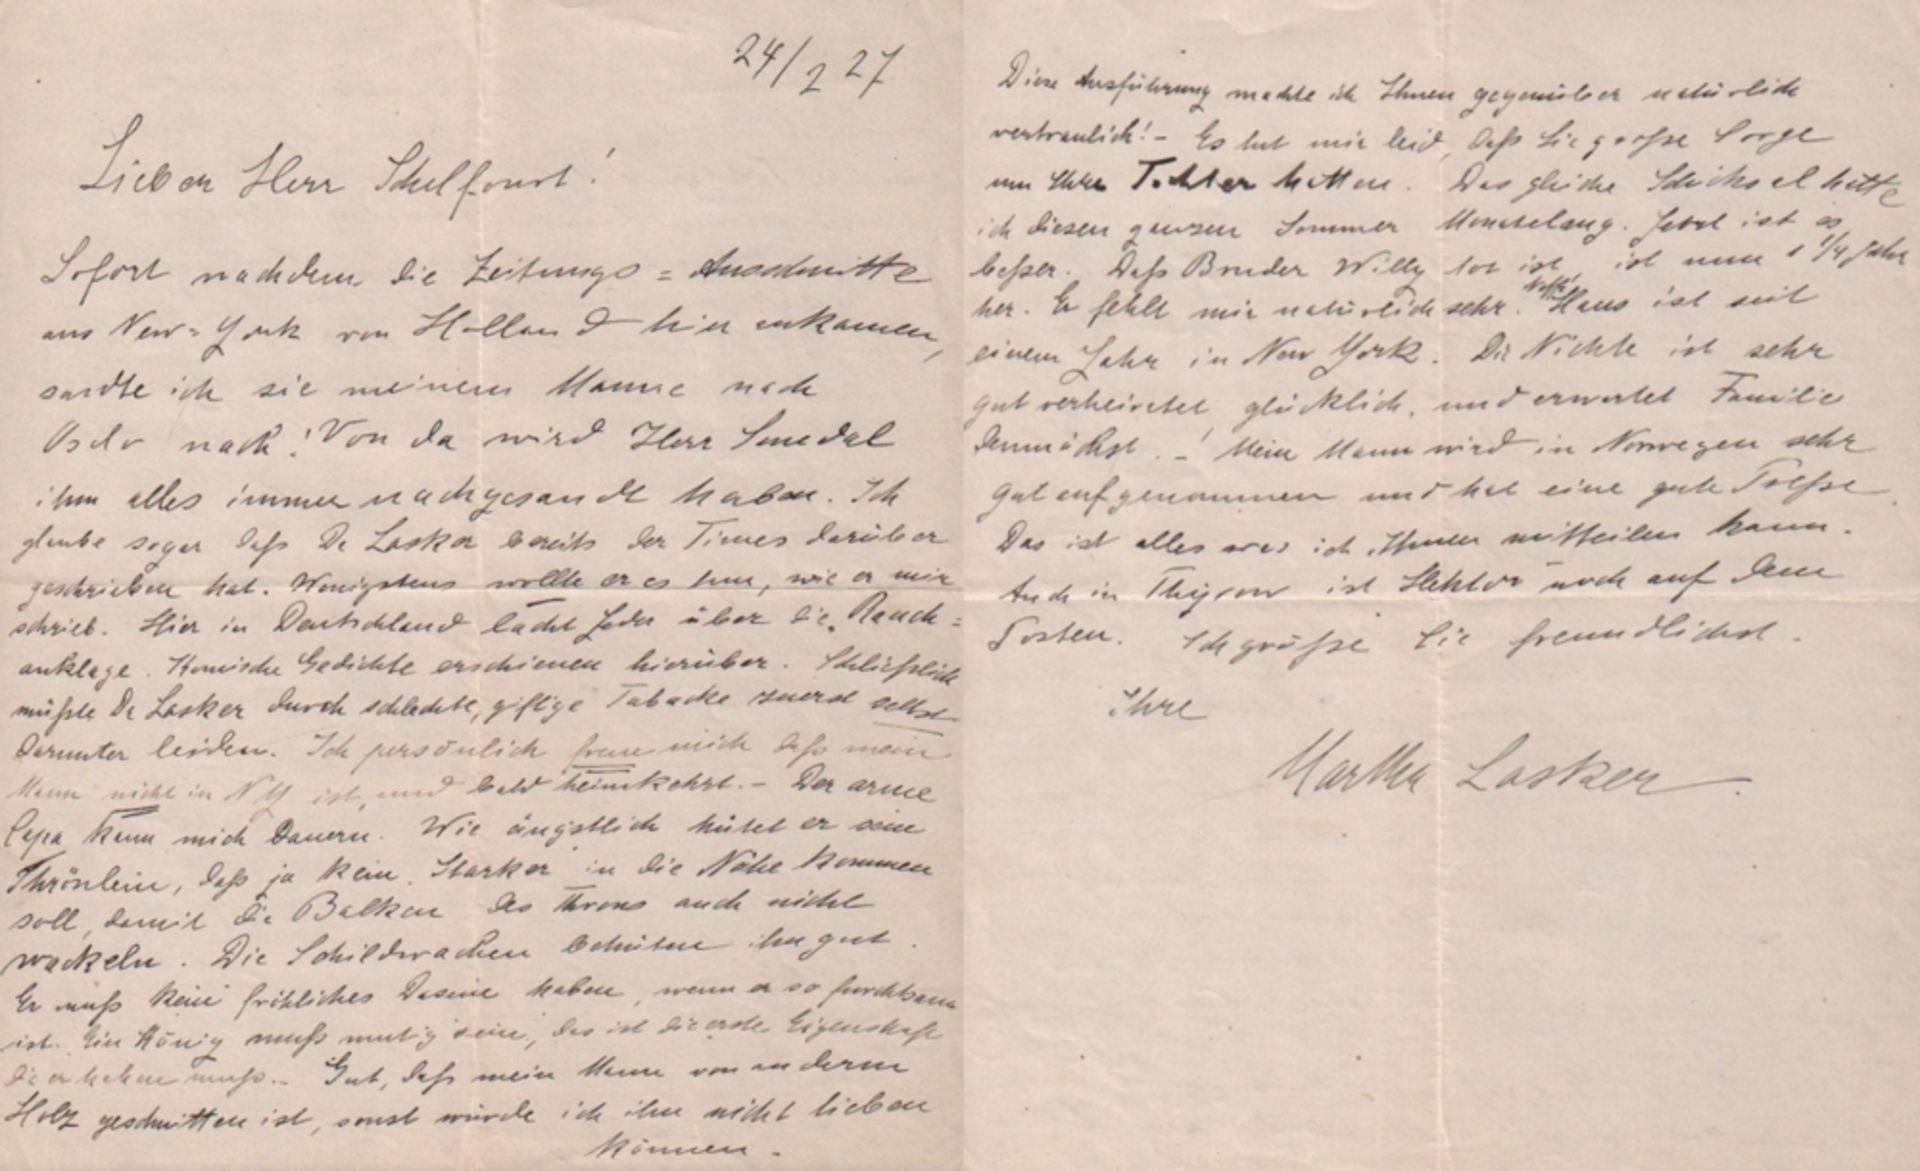 24/2 27
Lieber Herr Schelfhout!
Sofort nachdem die Zeitungs=Ausschnitte
aus New=York von Holland hier ankamen,
sandte ich sie meinem Manne nach
Oslo nach! Von da wird Herr Smedal
ihm alles immer nachgesandt haben. Ich
glaube sogar daß Dr Lasker bereits der Times darüber
geschrieben hat. Wenigstens wollte er es tun, wie er mir
schrieb. Hier in Deutschland lacht Jeder über die Rauch=
anklage. Komische Gedichte erschienen hierüber. Schließlich
müßte Dr Lasker durch schlechte, giftige Tabacke zuerst selbst
darunter leiden. Ich persönlich freue mich daß mein
Mann nicht in NY ist, und bald heimkehrt. – Der arme
Capa kann mich dauern. Wie ängstlich hütet er sein
Thrönlein, daß ja kein Starker in die Nähe kommen
soll, damit die Balken des Throns auch nicht
wackeln. Die Schildwachen behüten ihn gut.
Er muß kein fröhliches Dasein haben, wenn er so furchtsam
ist. Ein König muß mutig sein, das ist die erste Eigenschaft
die er haben muß. – Gut, daß mein Mann von anderm
Holz geschnitten ist, sonst würde ich ihn nicht lieben
können.
Diese Ausführung machte ich Ihnen gegenüber natürlich
vertraulich! – Es tut mir leid, daß Sie große Sorge
um Ihre Tochter hatten. Das gleiche Schicksal hatte
ich diesen ganzen Sommer Monatelang. Jetzt ist es
beßer. Daß Bruder Willy tot ist, ist nun 1 1/4 Jahr
her. Er fehlt mir natürlich sehr. Neffe Hans ist seit
einem Jahr in New York. Die Nichte ist sehr
gut verheiratet, glücklich, und erwartet Familie
demnächst. –! Mein Mann wird in Norwegen sehr
gut aufgenommen und hat eine gute Preße.
Das ist alles was ich Ihnen mitteilen kann.
Auch in Thyrow ist Hektor noch auf dem
Posten. Ich grüße Sie freundlichst.
Ihre
Martha Lasker.